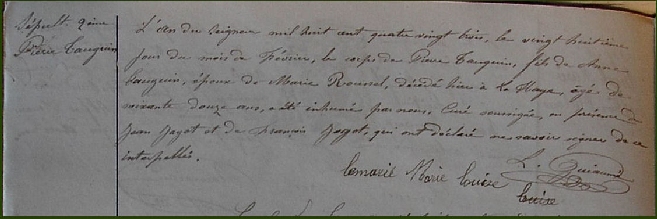 Sépult. 9ème
Pierre Tauguin
L'an du Seigneur mil huit cent quatre vingt trois, le vingt huitième
jour du mois de Février, le corps de Pierre Tauguin, fils de Anne
Tauguin, époux de Marie Roussel, décédé hier à la Haye, âgé de
soixante douze ans, a été inhumé par nous, Curé soussigné, en présence de
Jean Jagot et de François Jagot, qui ont déclaré ne savoir signer de ce
interpellés.
Marie Louise
Louise